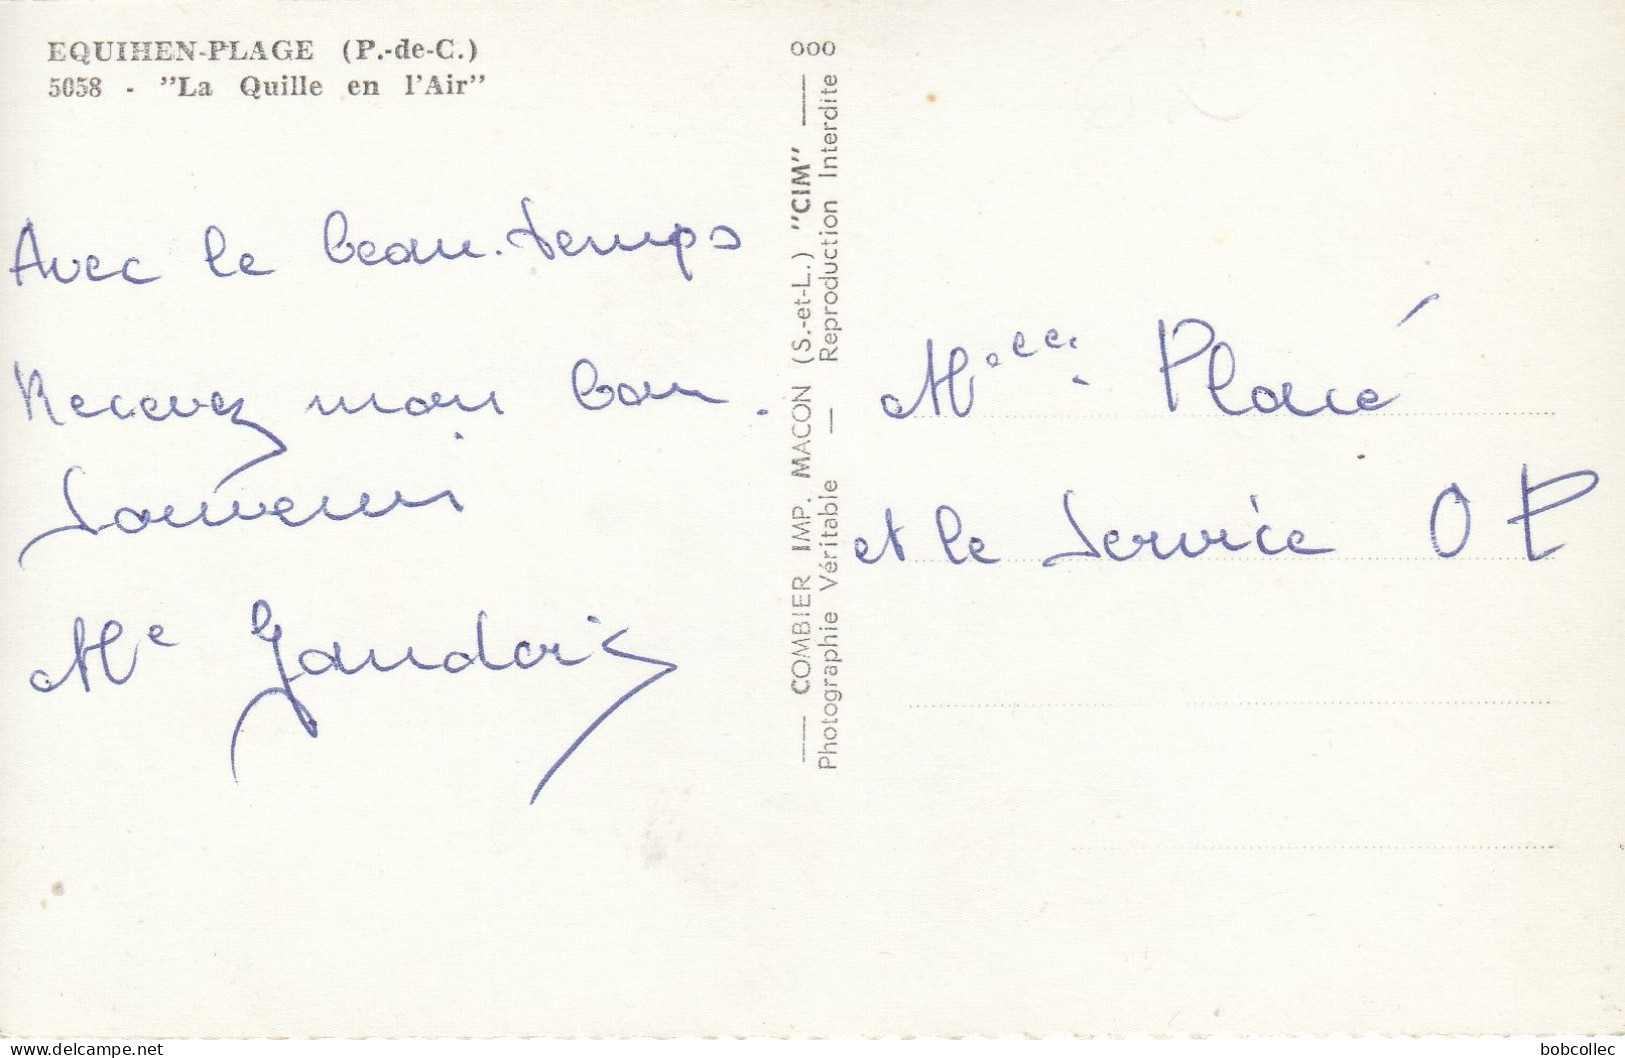 EQUIHEN-PLAGE (P.-de-C.)
5058 - "La Quille en l'Air"
Avec le beau temps
Recevez mon bon
Souvenir
Me
OOO
COMBIER IMP. MACON (S.-et-L.) "CIM"
Photographie Véritable — Reproduction Interdite
Melle Placé
et le Service O P
bobcollec